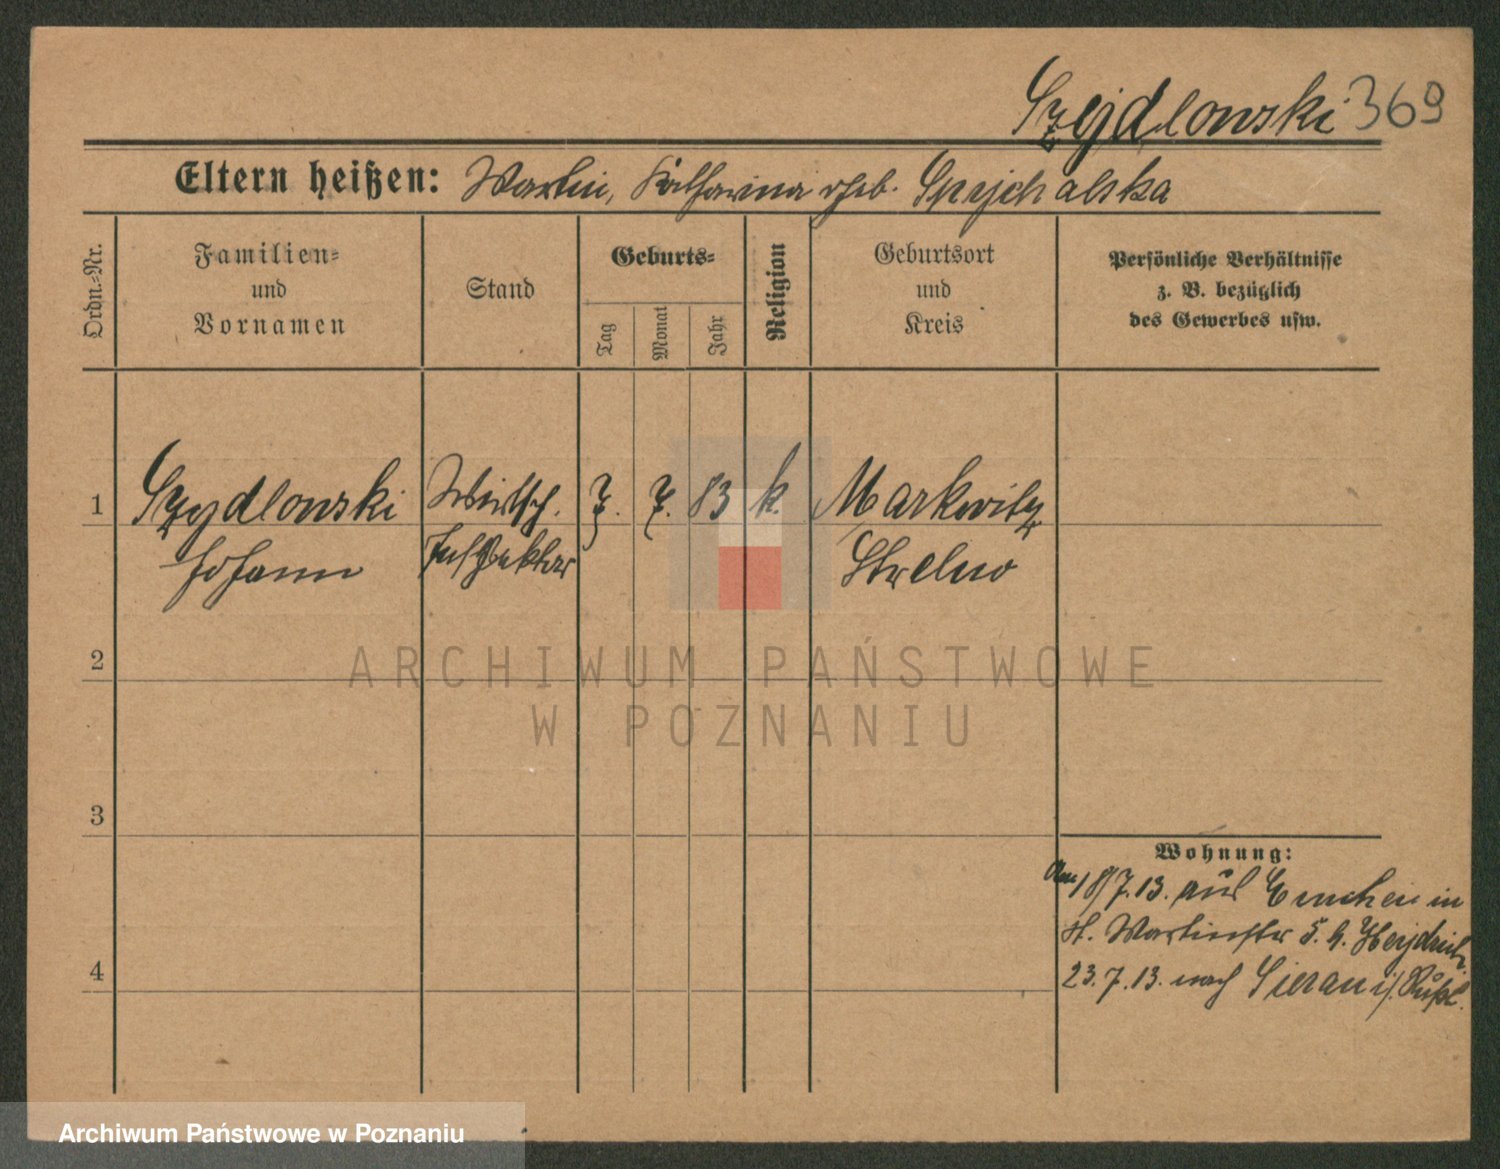 Szydlowski 369
Eltern heißen: Martin, Katharina geb. Spychalska
Ordn.-Nr.
Familien-
und
Vornamen
Stand
Geburts-
Tag
Monat
Jahr
Religion
Geburtsort
und
Kreis
Persönliche Verhältnisse
z. B. bezüglich
des Gewerbes usw.
1 Szydlowski Wirtsch. 7. 7. 83 k. Markwitz
Johann Inspektor Strelno
2
3
4
Wohnung:
Am 18/7.13. aus in
St. Martinstr 5. b. Heydrich
23.7.13. nach i/Rußl.
ARCHIWUM PAŃSTWOWE
W POZNANIU
Archiwum Państwowe w Poznaniu